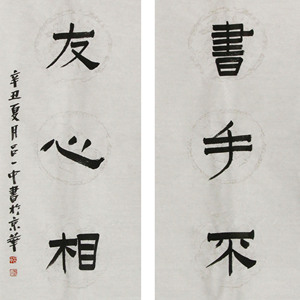 書手不
友心相
辛丑夏月吕一中書於京華